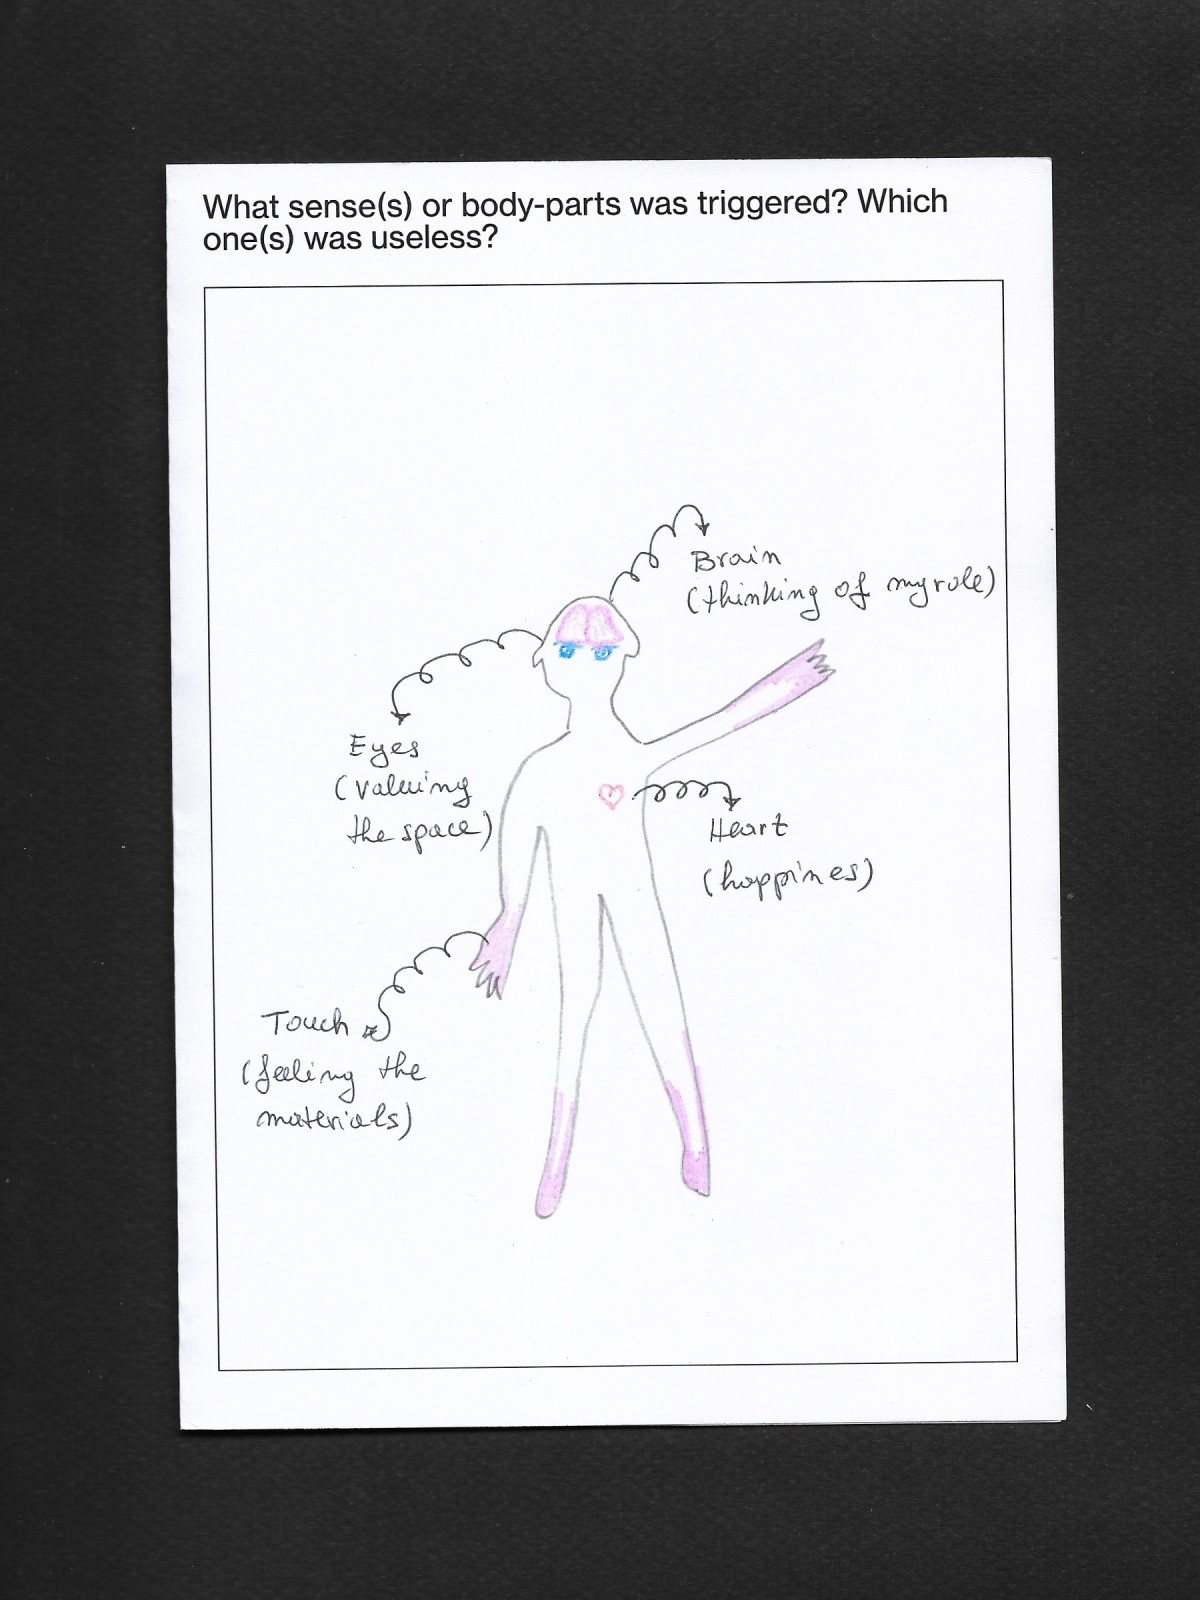 What sense(s) or body-parts was triggered? Which
one(s) was useless?
Brain
(thinking of my role)
Eyes
(valuing
the space)
Heart
(happines)
Touch
(feeling the
materials)